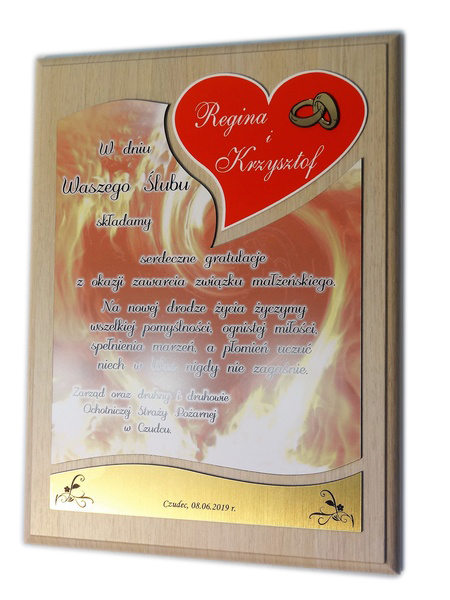 Regina
i
Krzysztof
W dniu
Waszego Ślubu
składamy
serdeczne gratulacje
z okazji zawarcia związku małżeńskiego.
Na nowej drodze życia życzymy
wszelkiej pomyślności, ognistej miłości,
spełnienia marzeń, a płomień uczuć
niech w nigdy nie zagaśnie.
Zarząd oraz druhny i druhowie
Ochotniczej Straży Pożarnej
w Czudcu.
Czudec, 08.06.2019 r.